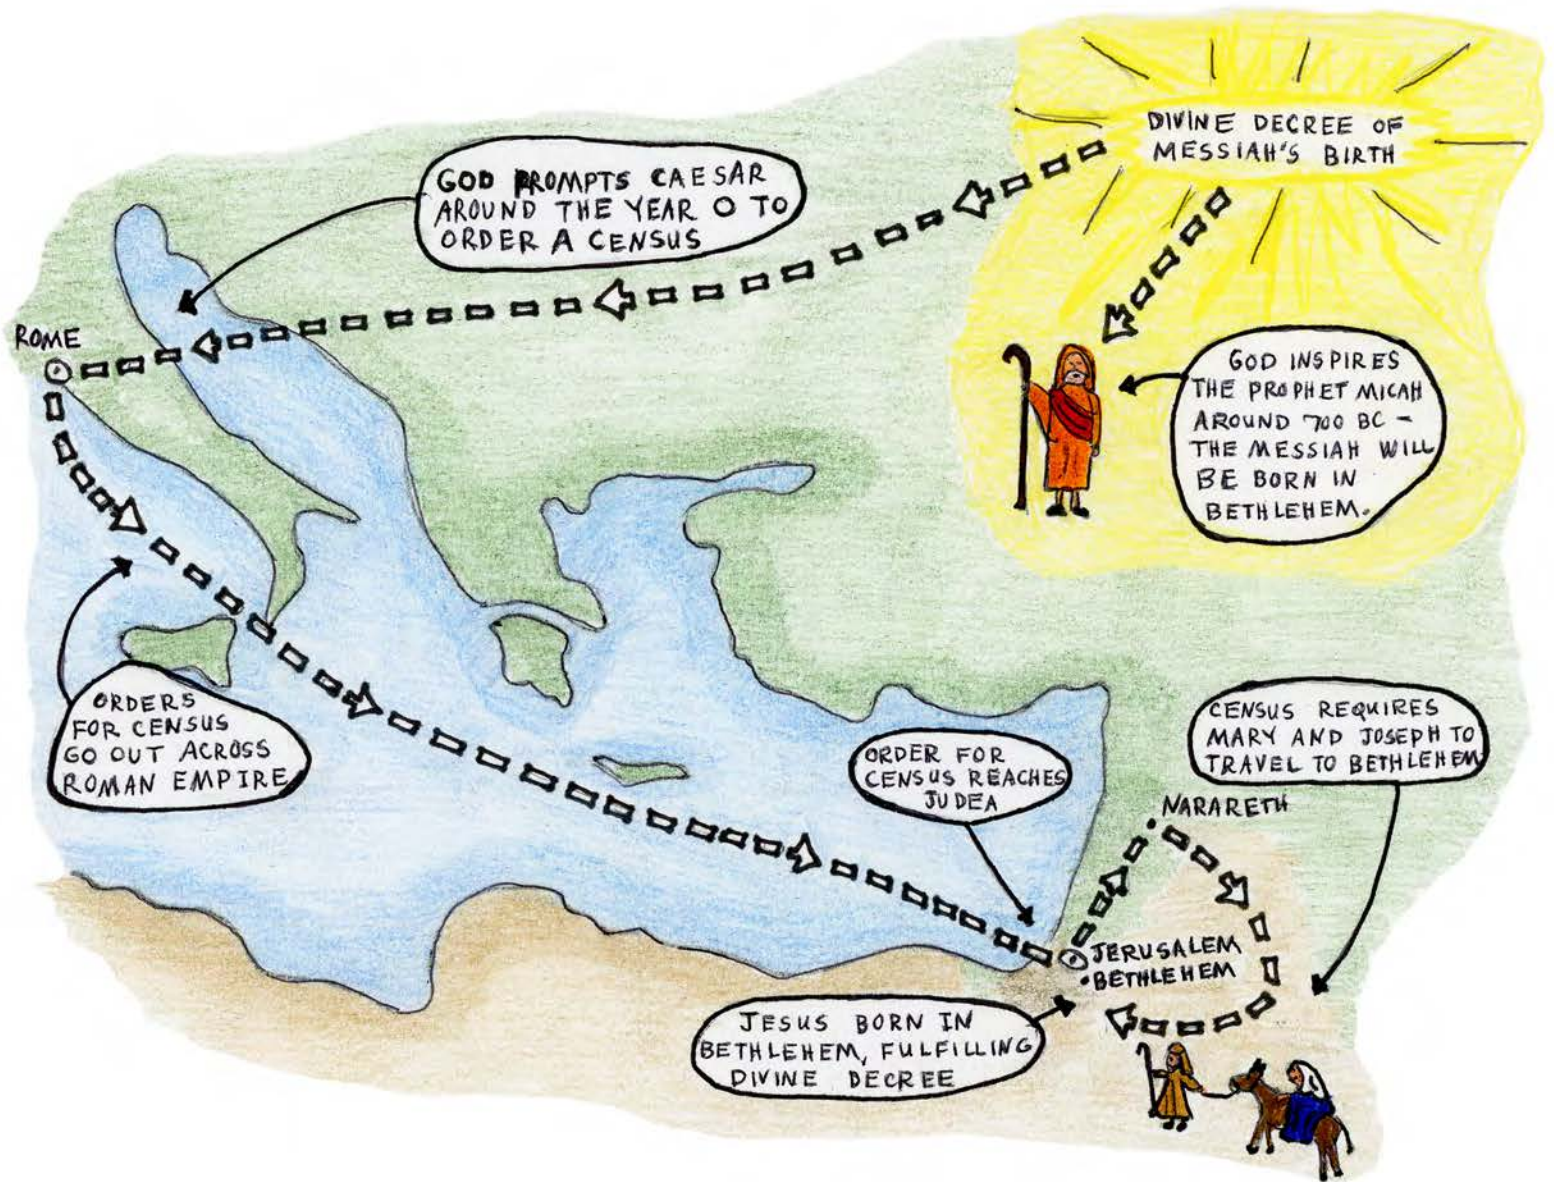 DIVINE DECREE OF
MESSIAH'S BIRTH
GOD PROMPTS CAESAR
AROUND THE YEAR 0 TO
ORDER A CENSUS
ROME
GOD INSPIRES
THE PROPHET MICAH
AROUND 700 BC -
THE MESSIAH WILL
BE BORN IN
BETHLEHEM.
ORDERS
FOR CENSUS
GO OUT ACROSS
ROMAN EMPIRE
ORDER FOR
CENSUS REACHES
JUDEA
CENSUS REQUIRES
MARY AND JOSEPH TO
TRAVEL TO BETHLEHEM
NARARETH
JERUSALEM
BETHLEHEM
JESUS BORN IN
BETHLEHEM, FULFILLING
DIVINE DECREE